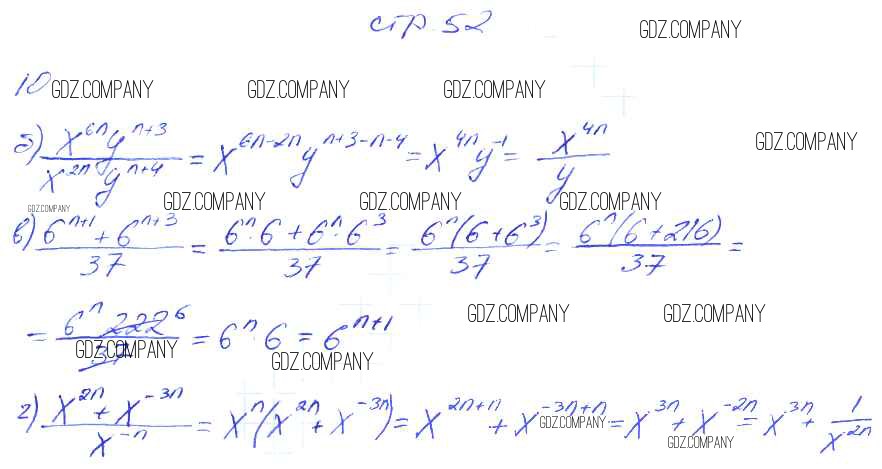 стр. 52
GDZ.COMPANY
10 GDZ.COMPANY GDZ.COMPANY GDZ.COMPANY
б) x^{6n}y^{n+3} / x^{2n}y^{n+4} = x^{6n-2n}y^{n+3-n-4} = x^{4n}y^{-1} = x^{4n} / y
GDZ.COMPANY
GDZ.COMPANY GDZ.COMPANY GDZ.COMPANY GDZ.COMPANY
в) 6^{n+1} + 6^{n+3} / 37 = 6^n · 6 + 6^n · 6^3 / 37 = 6^n(6 + 6^3) / 37 = 6^n(6 + 216) / 37 =
GDZ.COMPANY GDZ.COMPANY
= 6^n 222 6 / 37 = 6^n · 6 = 6^{n+1}
GDZ.COMPANY GDZ.COMPANY
г) x^{2n} + x^{-3n} / x^{-n} = x^n(x^{2n} + x^{-3n}) = x^{2n+n} + x^{-3n+n} = x^{3n} + x^{-2n} = x^{3n} + 1 / x^{2n}
GDZ.COMPANY
GDZ.COMPANY